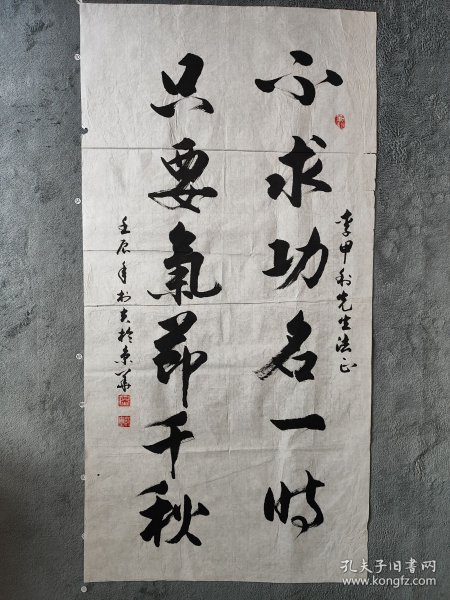 不求功名一時
李甲利先生法正
只要氣節千秋
壬辰年
孔夫子旧书网
www.kongfz.com